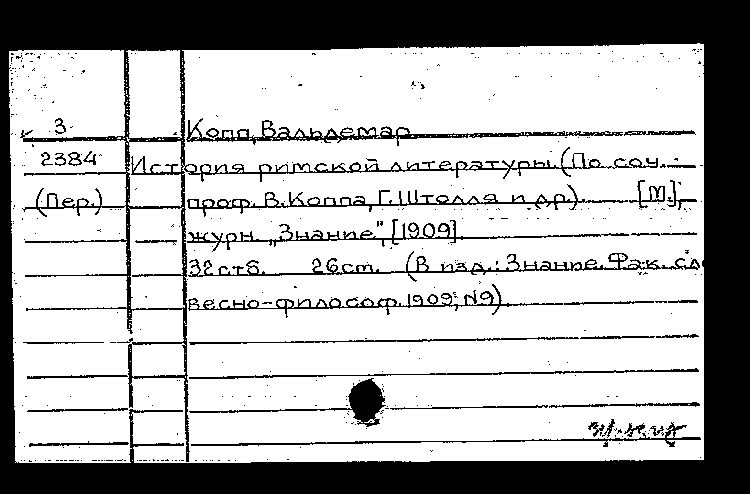 3 Копп, Вальдемар
2384 История римской литературы. (По соч.
(Пер.) проф. В. Коппа, Г. Штолля и др.). [М.],
журн. „Знание", [1909].
32стб. 26см. (В изд.: Знание. Фак. сло
весно-философ. 1909, №9).